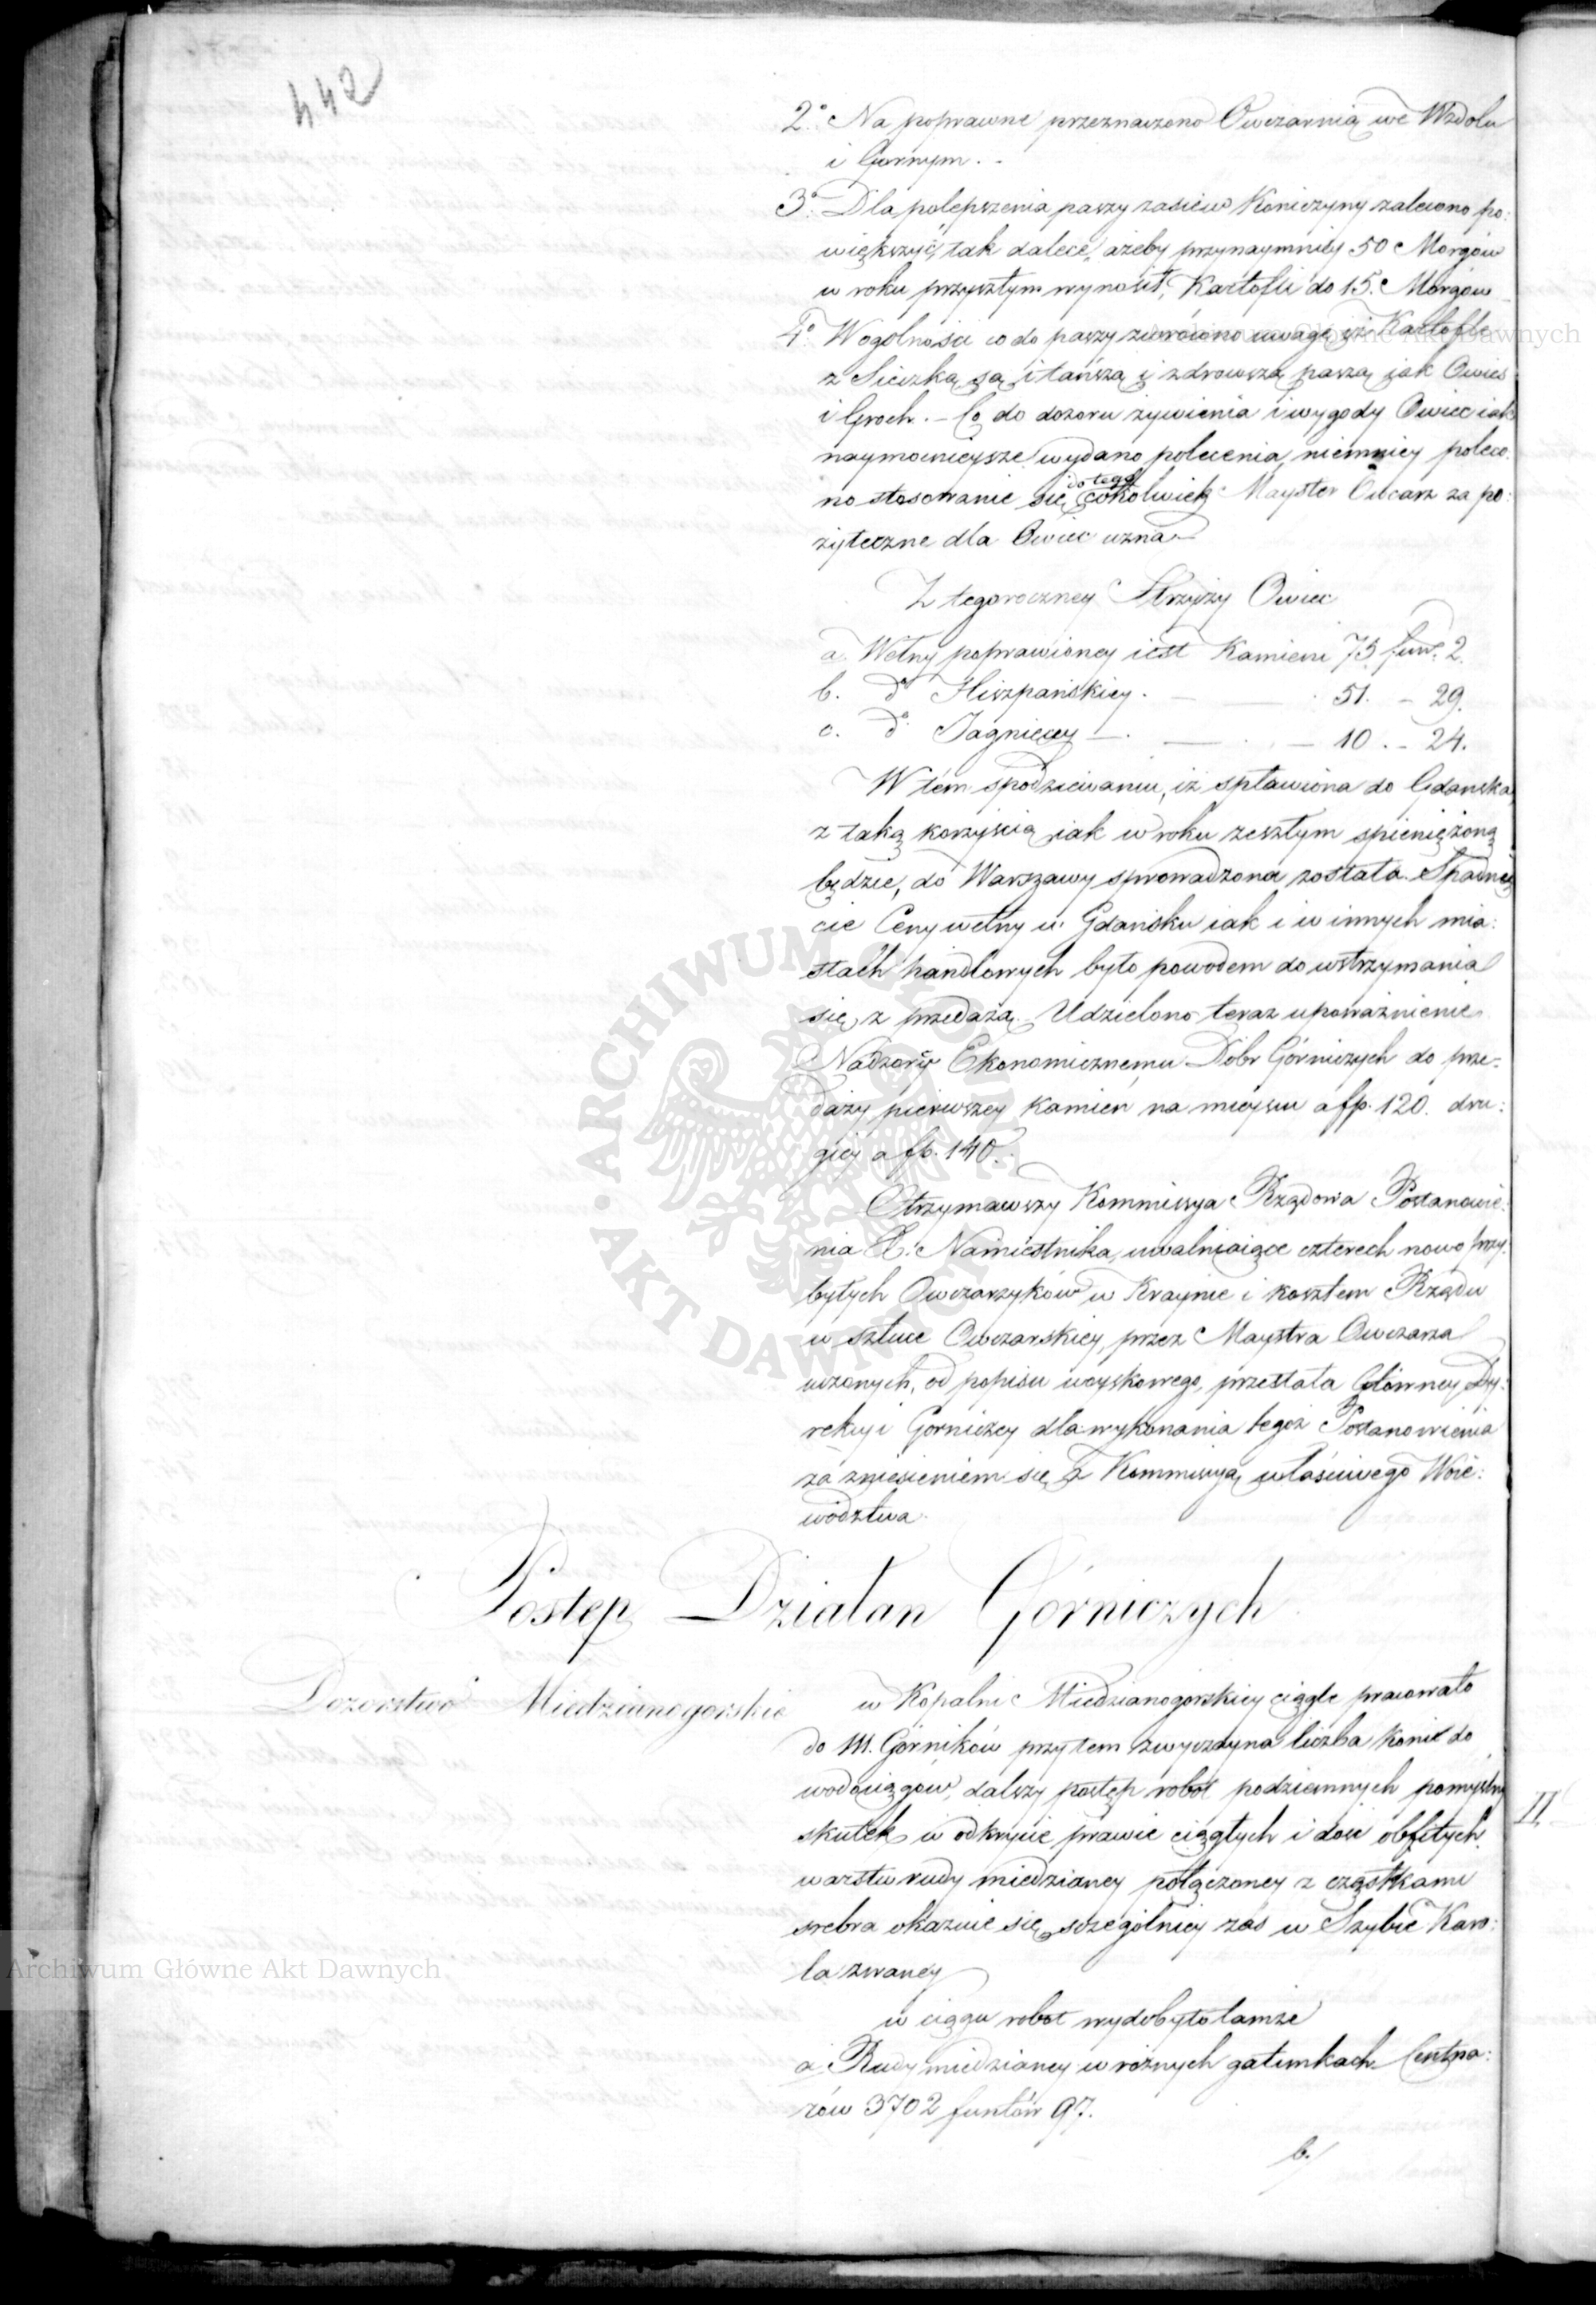 442
2.° Na poprawne przeznaczono Owczarnią we Wzdolu
i Gornym. -
3.° Dla polepszenia paszy zasiew Koniczyny zalecono po:
większyć, tak dalece, ażeby przynaymniey 50 Morgów
w roku przyszłym wynosił, Kartofli do 15. Morgów
4.° Wogolności co do paszy zwrócono uwagę iż Kartofle
z Sieczką są i tańszą i zdrowszą paszą jak Owies
i Groch. - Co do dozoru żywienia i wygody Owiec iak
naymocnieysze wydano polecenia, niemniey poleco:
no stosowanie się do tego cokolwiek Mayster Owczarz za po:
żyteczne dla Owiec uzna
Z tegoroczney Strzyży Owiec
a. Wełny poprawioney iest Kamieni 75 funt. 2.
b. d° Hiszpańskiey. — 51. - 29.
c. d° Jagnięcey — 10. - 24.
W tém spodziewaniu, iż spławiona do Gdanska,
z taką korzyścią iak w roku zeszłym spieniężoną
będzie, do Warszawy sprowadzona została. Spadnię
cie Ceny wełny w Gdańsku iak i w innych mia:
stach handlowych było powodem do wstrzymania
się z przedażą. Udzielono teraz upoważnienie
Nadzorowi Ekonomicznemu Dóbr Górniczych do prze-
daży pierwszey Kamień na mieyscu a fp. 120. dru:
giey a fp. 140.
Otrzymawszy Kommissya Rządowa Postanowie:
nia X. Namiestnika, uwalniaiące czterech nowo przy:
byłych Owczarzyków w Kraynie i kosztem Rządu
w sztuce Owczarskiey, przez Maystra Owczarza
uczonych, od popisu woyskowego, przesłała Główney Dy:
rekcyi Gorniczey dla wykonania tegoż Postanowienia
za zniesieniem się z Kommissyą właściwego Woie:
wództwa.
Postęp Działan Górniczych
Dozorstwo Miedzianogorskie
w Kopalni Miedzianogorskiey ciągle pracowało
do 111. Górników przytem zwyczayna liczba koni do
wodociągów, dalszy postęp robot podziemnych pomyślny
skutek w odkrycie prawie ciągłych i dość obfitych
warstw rudy miedzianey połączoney z cząstkami
srebra okazuie się, szczególniey zaś w Szybie Karo:
la zwaney
w ciągu robot wydobyto tamże
a. Rudy miedzianey w różnych gatunkach Centna:
rów 3702 funtów 97.
b.
II
Archiwum Główne Akt Dawnych
Archiwum Główne Akt Dawnych
ARCHIWUM GŁÓWNE • AKT DAWNYCH